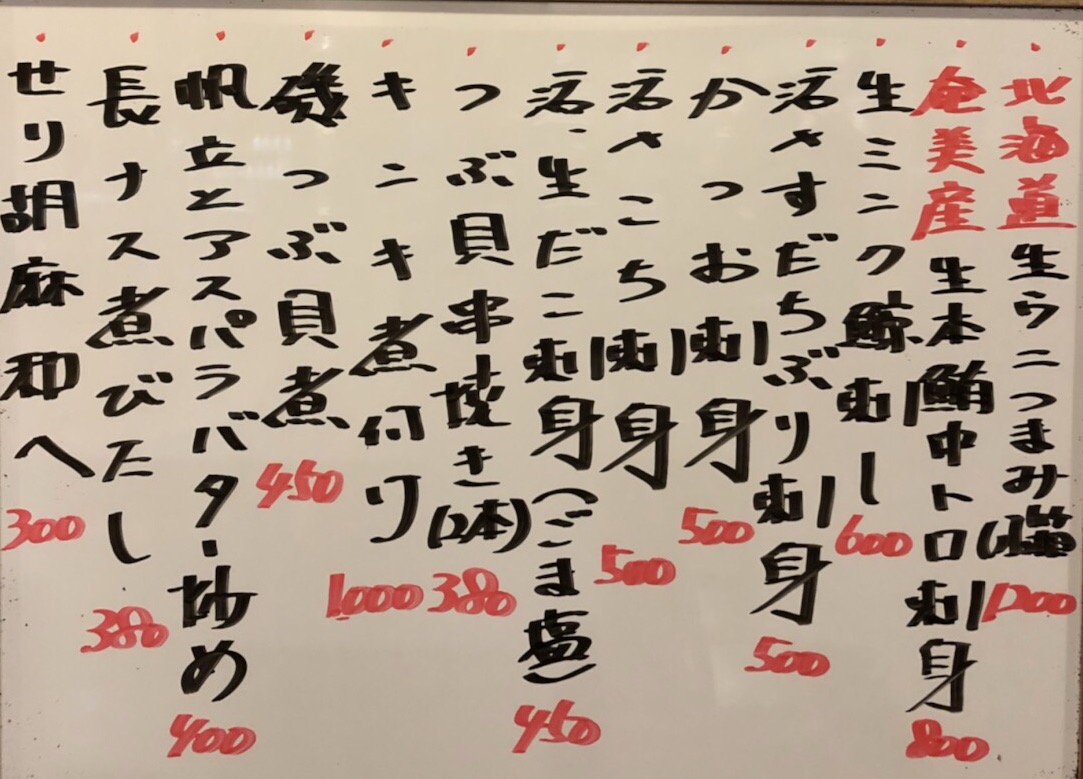 北海道生ウニつまみ(1箱) 1200
奄美産生本鮪中トロ刺身 800
生ミンク鯨刺し 600
活〆すだちぶり刺身 500
かつお刺身 500
活〆こち刺身 500
活、生だこ刺身(ごま塩) 450
つぶ貝串焼き(2本) 380
キンキ煮付り 1.000
磯つぶ貝煮 450
帆立とアスパラバター炒め 400
長ナス煮びたし 380
せり胡麻和へ 300